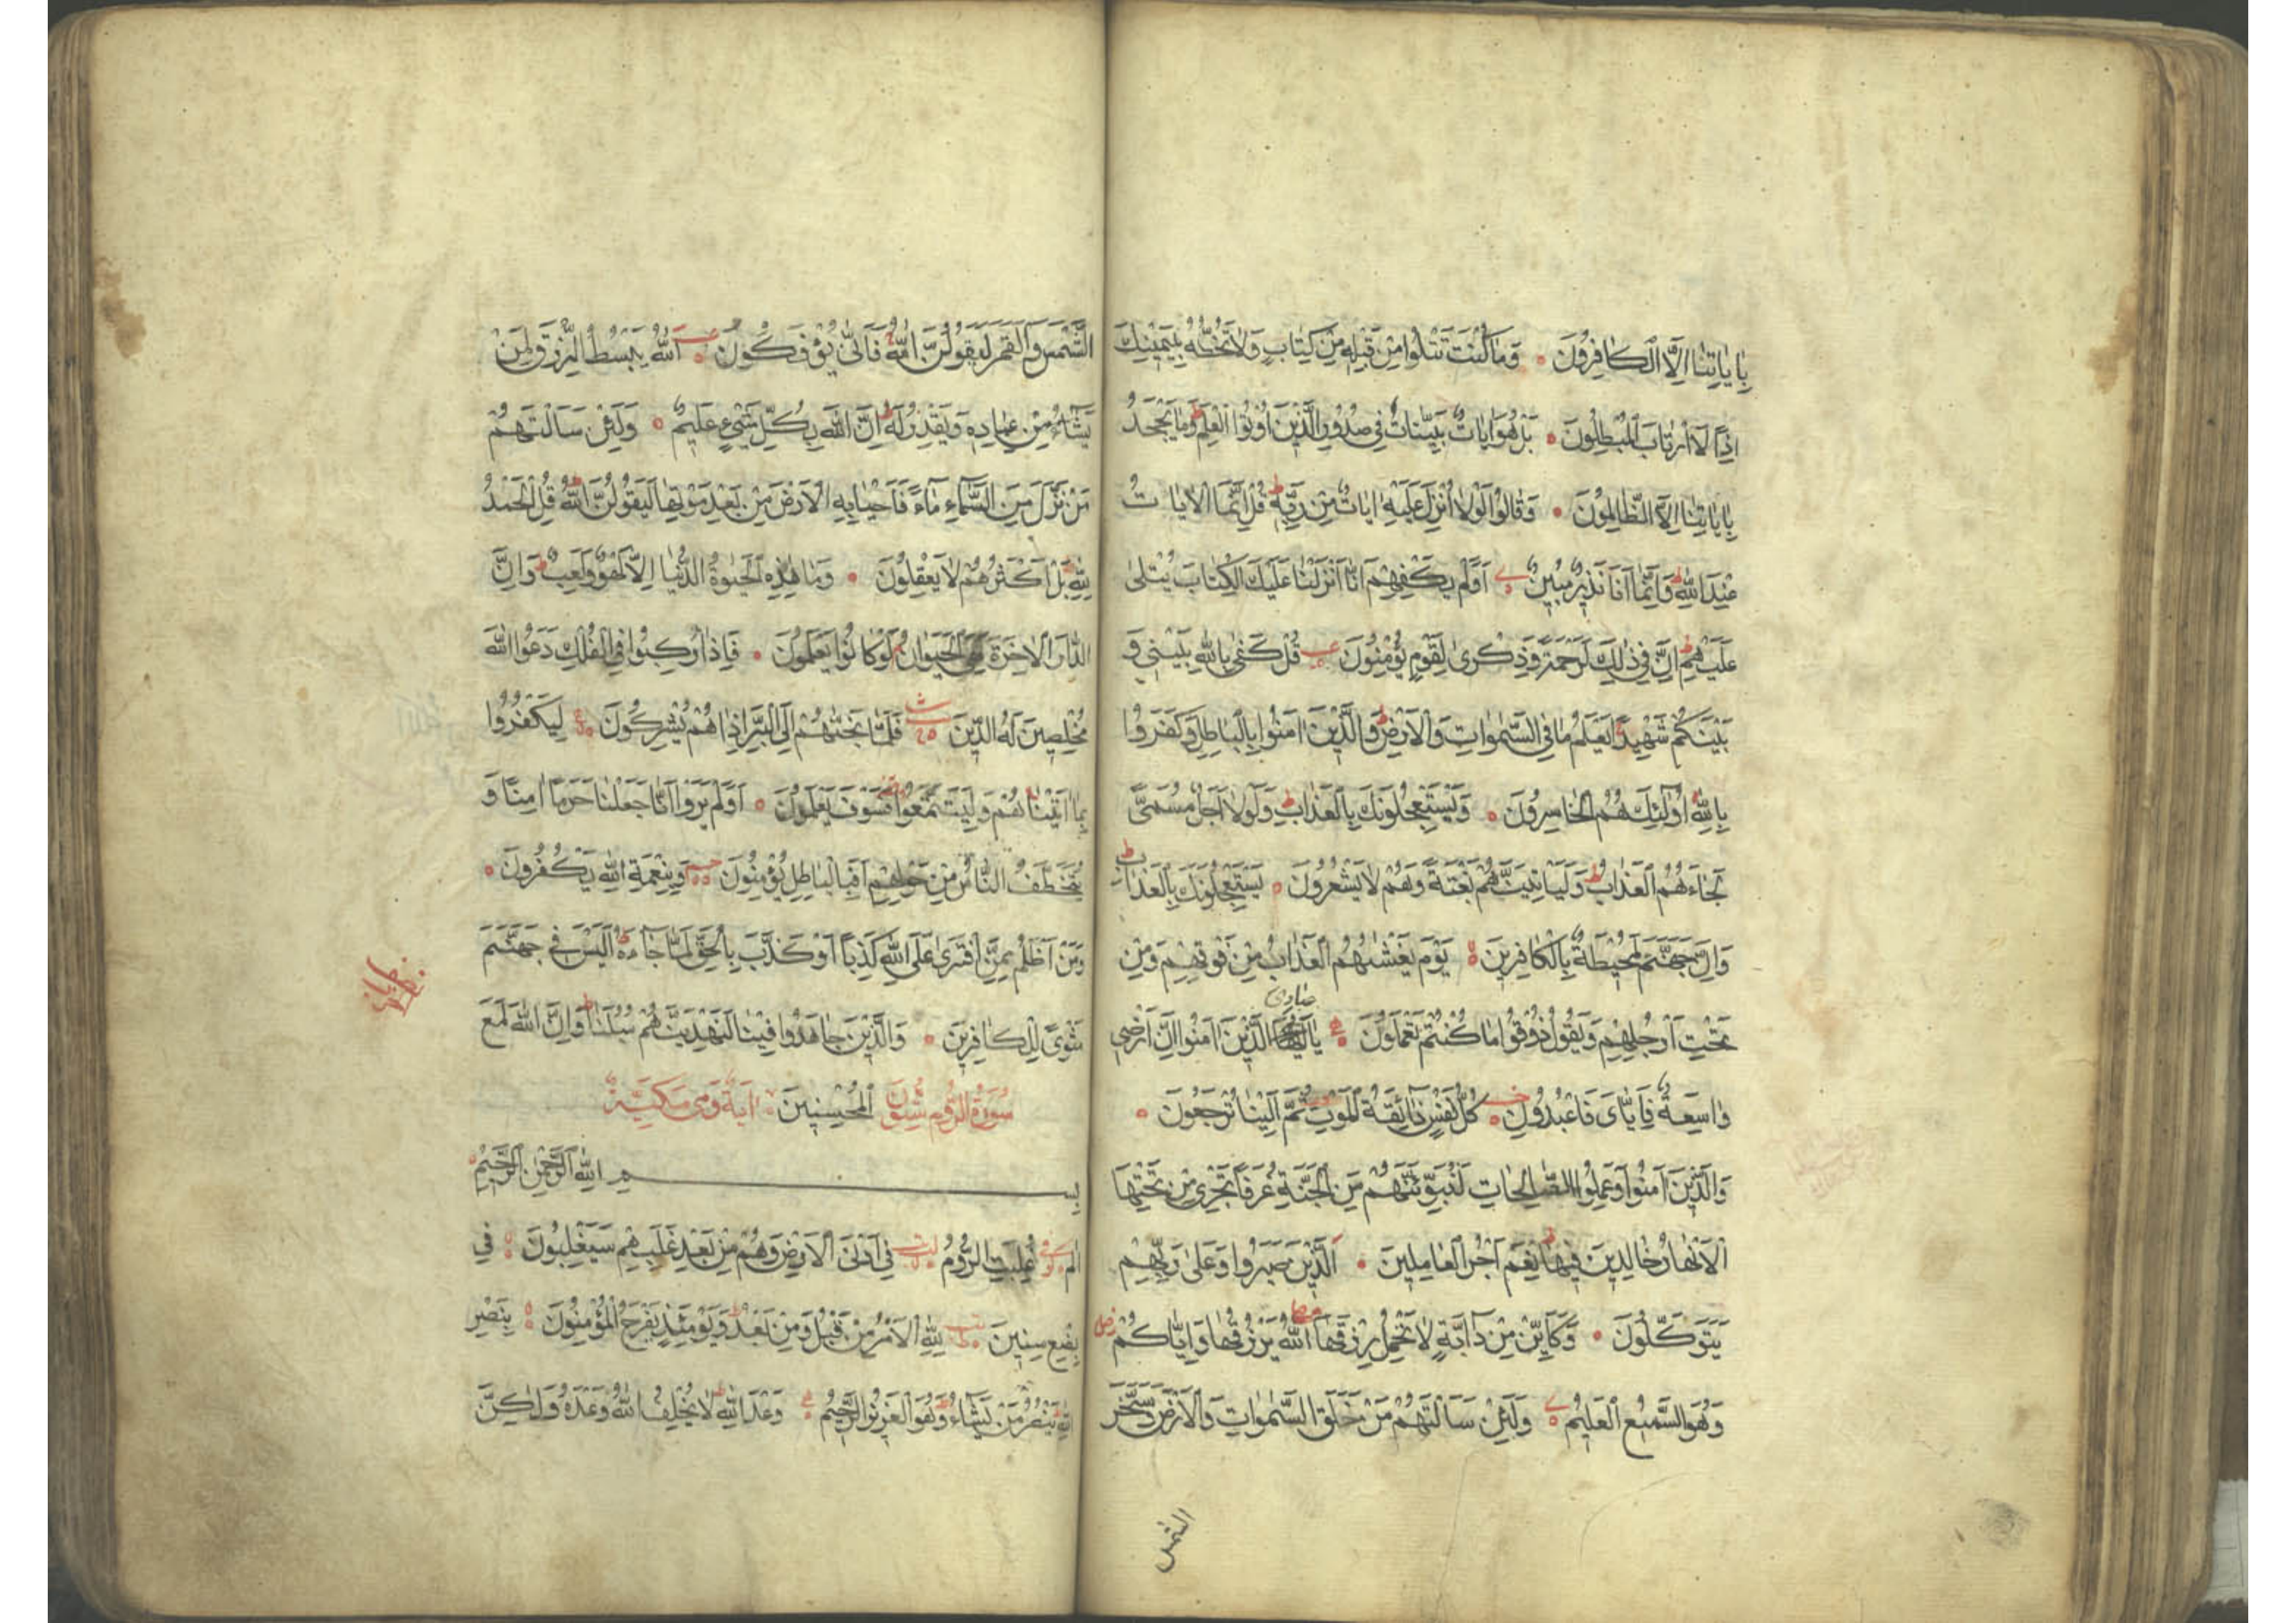 بِاٰيَاتِنَا اِلَّا الْكَافِرُونَ ۰ وَمَا كُنْتَ تَتْلُوا مِنْ قَبْلِهِ مِنْ كِتَابٍ وَلَا تَخُطُّهُ بِيَمِينِكَ
اِذًا لَا ارْتَابَ الْمُبْطِلُونَ ۰ بَلْ هُوَ اٰيَاتٌ بَيِّنَاتٌ فِي صُدُورِ الَّذِينَ اُوتُوا الْعِلْمَ ط وَمَا يَجْحَدُ
بِاٰيَاتِنَا اِلَّا الظَّالِمُونَ ۰ وَقَالُوا لَوْلَا اُنْزِلَ عَلَيْهِ اٰيَاتٌ مِنْ رَبِّهِ ط قُلْ اِنَّمَا الْاٰيَاتُ
عِنْدَ اللّٰهِ ط وَاِنَّمَا اَنَا نَذِيرٌ مُبِينٌ ۰ اَوَلَمْ يَكْفِهِمْ اَنَّا اَنْزَلْنَا عَلَيْكَ الْكِتَابَ يُتْلٰى
عَلَيْهِمْ ط اِنَّ فِي ذٰلِكَ لَرَحْمَةً وَذِكْرٰى لِقَوْمٍ يُؤْمِنُونَ ۰ قُلْ كَفٰى بِاللّٰهِ بَيْنِي وَ
بَيْنَكُمْ شَهِيدًا يَعْلَمُ مَا فِي السَّمٰوَاتِ وَالْاَرْضِ ط وَالَّذِينَ اٰمَنُوا بِالْبَاطِلِ وَكَفَرُوا
بِاللّٰهِ اُولٰئِكَ هُمُ الْخَاسِرُونَ ۰ وَيَسْتَعْجِلُونَكَ بِالْعَذَابِ ط وَلَوْلَا اَجَلٌ مُسَمًّى
لَجَاءَهُمُ الْعَذَابُ ط وَلَيَاْتِيَنَّهُمْ بَغْتَةً وَهُمْ لَا يَشْعُرُونَ ۰ يَسْتَعْجِلُونَكَ بِالْعَذَابِ ط
وَاِنَّ جَهَنَّمَ لَمُحِيطَةٌ بِالْكَافِرِينَ ۰ يَوْمَ يَغْشٰيهُمُ الْعَذَابُ مِنْ فَوْقِهِمْ وَمِنْ
تَحْتِ اَرْجُلِهِمْ وَيَقُولُ ذُوقُوا مَا كُنْتُمْ تَعْمَلُونَ ۰ يَا عِبَادِيَ الَّذِينَ اٰمَنُوا اِنَّ اَرْضِي
وَاسِعَةٌ فَاِيَّايَ فَاعْبُدُونِ ۰ كُلُّ نَفْسٍ ذَائِقَةُ الْمَوْتِ ثُمَّ اِلَيْنَا تُرْجَعُونَ ۰
وَالَّذِينَ اٰمَنُوا وَعَمِلُوا الصَّالِحَاتِ لَنُبَوِّئَنَّهُمْ مِنَ الْجَنَّةِ غُرَفًا تَجْرِي مِنْ تَحْتِهَا
الْاَنْهَارُ خَالِدِينَ فِيهَا ط نِعْمَ اَجْرُ الْعَامِلِينَ ۰ اَلَّذِينَ صَبَرُوا وَعَلٰى رَبِّهِمْ
يَتَوَكَّلُونَ ۰ وَكَاَيِّنْ مِنْ دَابَّةٍ لَا تَحْمِلُ رِزْقَهَا اَللّٰهُ يَرْزُقُهَا وَاِيَّاكُمْ
وَهُوَ السَّمِيعُ الْعَلِيمُ ۰ وَلَئِنْ سَاَلْتَهُمْ مَنْ خَلَقَ السَّمٰوَاتِ وَالْاَرْضَ وَسَخَّرَ
الشمس
الشَّمْسَ وَالْقَمَرَ لَيَقُولُنَّ اللّٰهُ فَاَنّٰى يُؤْفَكُونَ ۰ اَللّٰهُ يَبْسُطُ الرِّزْقَ لِمَنْ
يَشَاءُ مِنْ عِبَادِهِ وَيَقْدِرُ لَهُ ط اِنَّ اللّٰهَ بِكُلِّ شَيْءٍ عَلِيمٌ ۰ وَلَئِنْ سَاَلْتَهُمْ
مَنْ نَزَّلَ مِنَ السَّمَاءِ مَاءً فَاَحْيَا بِهِ الْاَرْضَ مِنْ بَعْدِ مَوْتِهَا لَيَقُولُنَّ اللّٰهُ ط قُلِ الْحَمْدُ
لِلّٰهِ ط بَلْ اَكْثَرُهُمْ لَا يَعْقِلُونَ ۰ وَمَا هٰذِهِ الْحَيٰوةُ الدُّنْيَا اِلَّا لَهْوٌ وَلَعِبٌ ط وَاِنَّ
الدَّارَ الْاٰخِرَةَ لَهِيَ الْحَيَوَانُ م لَوْ كَانُوا يَعْلَمُونَ ۰ فَاِذَا رَكِبُوا فِي الْفُلْكِ دَعَوُا اللّٰهَ
مُخْلِصِينَ لَهُ الدِّينَ فَلَمَّا نَجّٰيهُمْ اِلَى الْبَرِّ اِذَا هُمْ يُشْرِكُونَ ۰ لِيَكْفُرُوا
بِمَا اٰتَيْنَاهُمْ وَلِيَتَمَتَّعُوا فَسَوْفَ يَعْلَمُونَ ۰ اَوَلَمْ يَرَوْا اَنَّا جَعَلْنَا حَرَمًا اٰمِنًا وَ
يُتَخَطَّفُ النَّاسُ مِنْ حَوْلِهِمْ اَفَبِالْبَاطِلِ يُؤْمِنُونَ وَبِنِعْمَةِ اللّٰهِ يَكْفُرُونَ ۰
وَمَنْ اَظْلَمُ مِمَّنِ افْتَرٰى عَلَى اللّٰهِ كَذِبًا اَوْ كَذَّبَ بِالْحَقِّ لَمَّا جَاءَهُ ط اَلَيْسَ فِي جَهَنَّمَ
مَثْوًى لِلْكَافِرِينَ ۰ وَالَّذِينَ جَاهَدُوا فِينَا لَنَهْدِيَنَّهُمْ سُبُلَنَا ط وَاِنَّ اللّٰهَ لَمَعَ
سُورَةُ الرُّومِ سِتُّونَ الْمُحْسِنِينَ ۰ اٰيَةً وَهِيَ مَكِّيَّةٌ
بِسْمِ اللّٰهِ الرَّحْمٰنِ الرَّحِيمِ
الم ۰ غُلِبَتِ الرُّومُ ۰ فِي اَدْنَى الْاَرْضِ وَهُمْ مِنْ بَعْدِ غَلَبِهِمْ سَيَغْلِبُونَ ۰ فِي
بِضْعِ سِنِينَ ۰ لِلّٰهِ الْاَمْرُ مِنْ قَبْلُ وَمِنْ بَعْدُ ط وَيَوْمَئِذٍ يَفْرَحُ الْمُؤْمِنُونَ ۰ بِنَصْرِ
اللّٰهِ ط يَنْصُرُ مَنْ يَشَاءُ ط وَهُوَ الْعَزِيزُ الرَّحِيمُ ۰ وَعْدَ اللّٰهِ ط لَا يُخْلِفُ اللّٰهُ وَعْدَهُ وَلٰكِنَّ